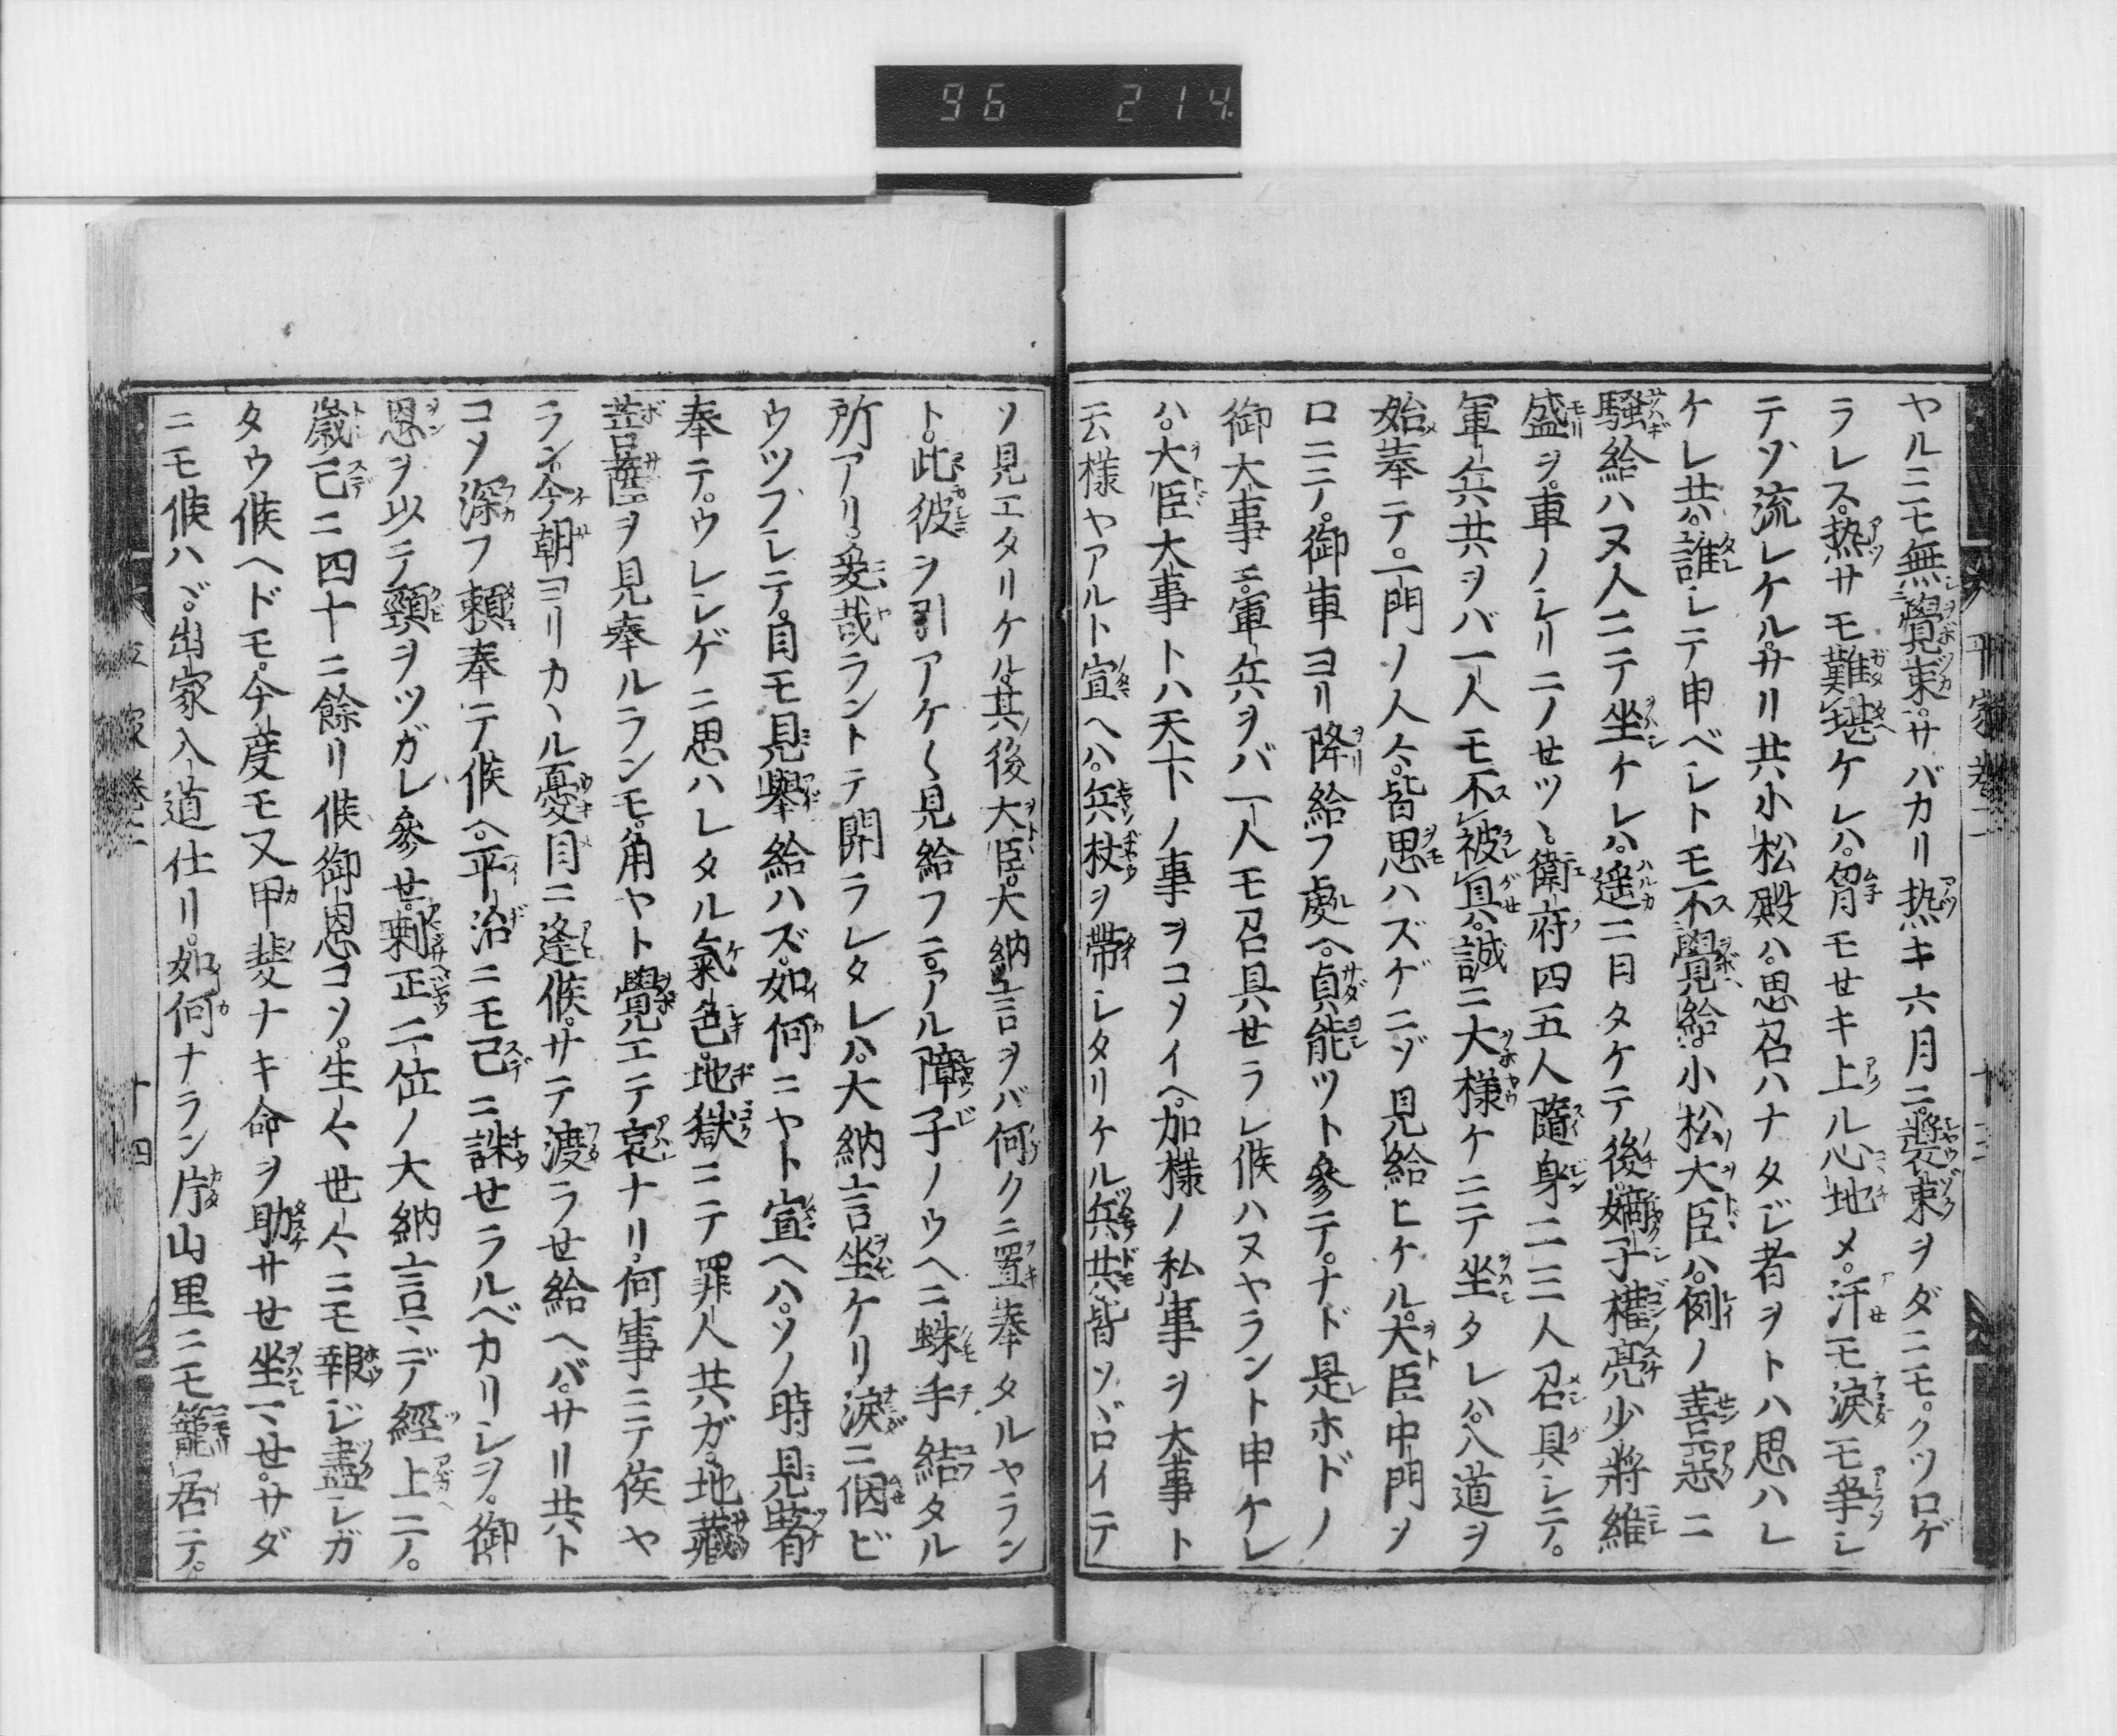 96 214
ヤルニモ無覺束。サバカリ热キ六月ニ。裝束ヲダニモ。クツロゲ
ラレス。热サモ難堪ケレハ。胷モせキ上ル心地メ。汗モ淚モ爭レ
テソ流レケル。サリ共小松殿ハ。思召ハナタジ者ヲトハ思ハレ
ケレ共。誰シテ申ベシトモ不覺給。小松大臣ハ。例ノ善惡ニ
騷給ハヌ人ニテ坐ケレハ。遥ニ日タケテ後。嫡子權亮少將維
盛ヲ。車ノシリニノせツヽ。衛府四五人隨身二三人召具シテ。
軍兵共ヲバ一人モ不被具。誠ニ大樣ケニテ坐タレハ。入道ヲ
始奉テ。一門ノ人々。皆思ハズゲニゾ見給ヒケル。大臣中門ヲ
ロニテ。御車ヨリ降給フ處ヘ。貞能ツト參テ。ナド是ホドノ
御大事ニ。軍兵ヲバ一人モ召具せラレ候ハヌヤラント申ケレ
ハ。大臣大事トハ天下ノ事ヲコソイヘ。加樣ノ私事ヲ大事ト
云樣ヤアルト宣ヘハ。兵杖ヲ帶シタリケル兵共。皆ソヾロイテ
ソ見エタリケル。其後大臣。大納言ヲバ何クニ置奉タルヤラン
ト。此彼ヲ引アケ〱見給フニ。アル障子ノウヘニ蛛手結タル
所アリ。爰哉ラントテ開ラレタレハ。大納言坐ケリ。淚ニ咽ビ
ウツフシテ。目モ見擧給ハズ。如何ニヤト宣ヘハ。ソノ時見着
奉テ。ウレシゲニ思ハレタル氣色。地獄ニテ罪人共ガ。地藏
菩薩ヲ見奉ルランモ。角ヤト覺エテ哀ナリ。何事ニテ候ヤ
ラン。今朝ヨリカヽル憂目ニ逢候。サテ渡ラせ給ヘバ。サリ共ト
コソ深フ頼奉テ候ヘ。平治ニモ已ニ誅せラルベカリシヲ。御
恩ヲ以テ頸ヲツガレ參せ。剩正二位ノ大納言ニデ經上テ。
歲已ニ四十ニ餘リ候。御恩コソ。生々世々ニモ報ジ盡シガ
タウ候ヘドモ。今度モ又甲斐ナキ命ヲ助サせ坐マせ。サダ
ニモ候ハヾ。出家入道仕リ。如何ナラン片山里ニモ籠居テ。
平家卷二
十四